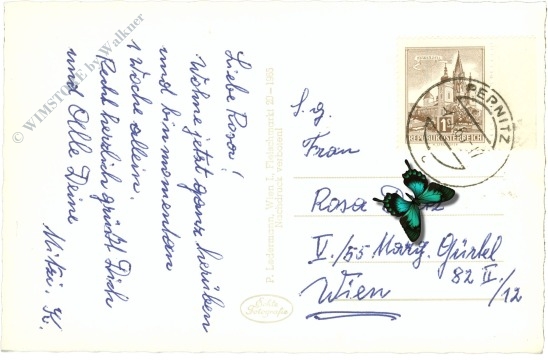 Liebe Rosa!
Wohne jetzt ganz herüben
und bin momentan
1 Woche allein.
Recht herzlich grüßt Dich
und Alle Deine
Mitzi. K.
P. Ledermann, Wien I, Fleischmarkt 20 – 1955
Nachdruck verboten!
Echte
Fotografie
REPUBLIK ÖSTERREICH
PERNITZ
S. g.
Frau
Rosa
V./55 Marg. Gürtel
82 II/12
Wien
© WIMSTORE by Walkner